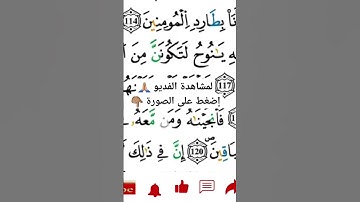 نَا۠ بِطَارِدِ اِ۬لْمُومِنِينَ 114
يَٰنُوحُ لَتَكُونَنَّ مِنَ
117
لمشاهدة الفديو 🙏🏼
إضغط على الصورة 👇🏽
فَأَنجَيْنَٰهُ وَمَن مَّعَهُۥ
بَاقِينَۖ 120 إِنَّ فِے ذَٰلِكَ